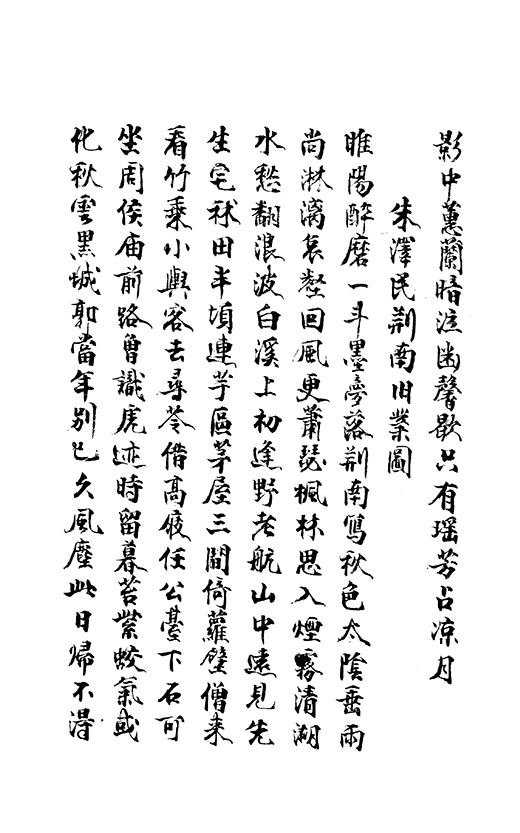 影中蕙蘭暗泣幽馨歇只有瑶芳占凉月
朱澤民荆南旧業圖
睢陽醉磨一斗墨夢落荆南寫秋色太陰垂雨
尚淋漓哀壑回風更蕭瑟楓林思入煙霧清湖
水愁翻浪波白溪上初逢野老航山中遠見先
生宅秫田半頃連芋區茅屋三間倚蘿壁僧来
看竹乘小輿客去尋苓借髙屐任公臺下石可
坐周侯庙前路曽識虎迹時留暮苔紫蛟氣或
化秋雲黒城郭當年别已久風塵此日歸不得